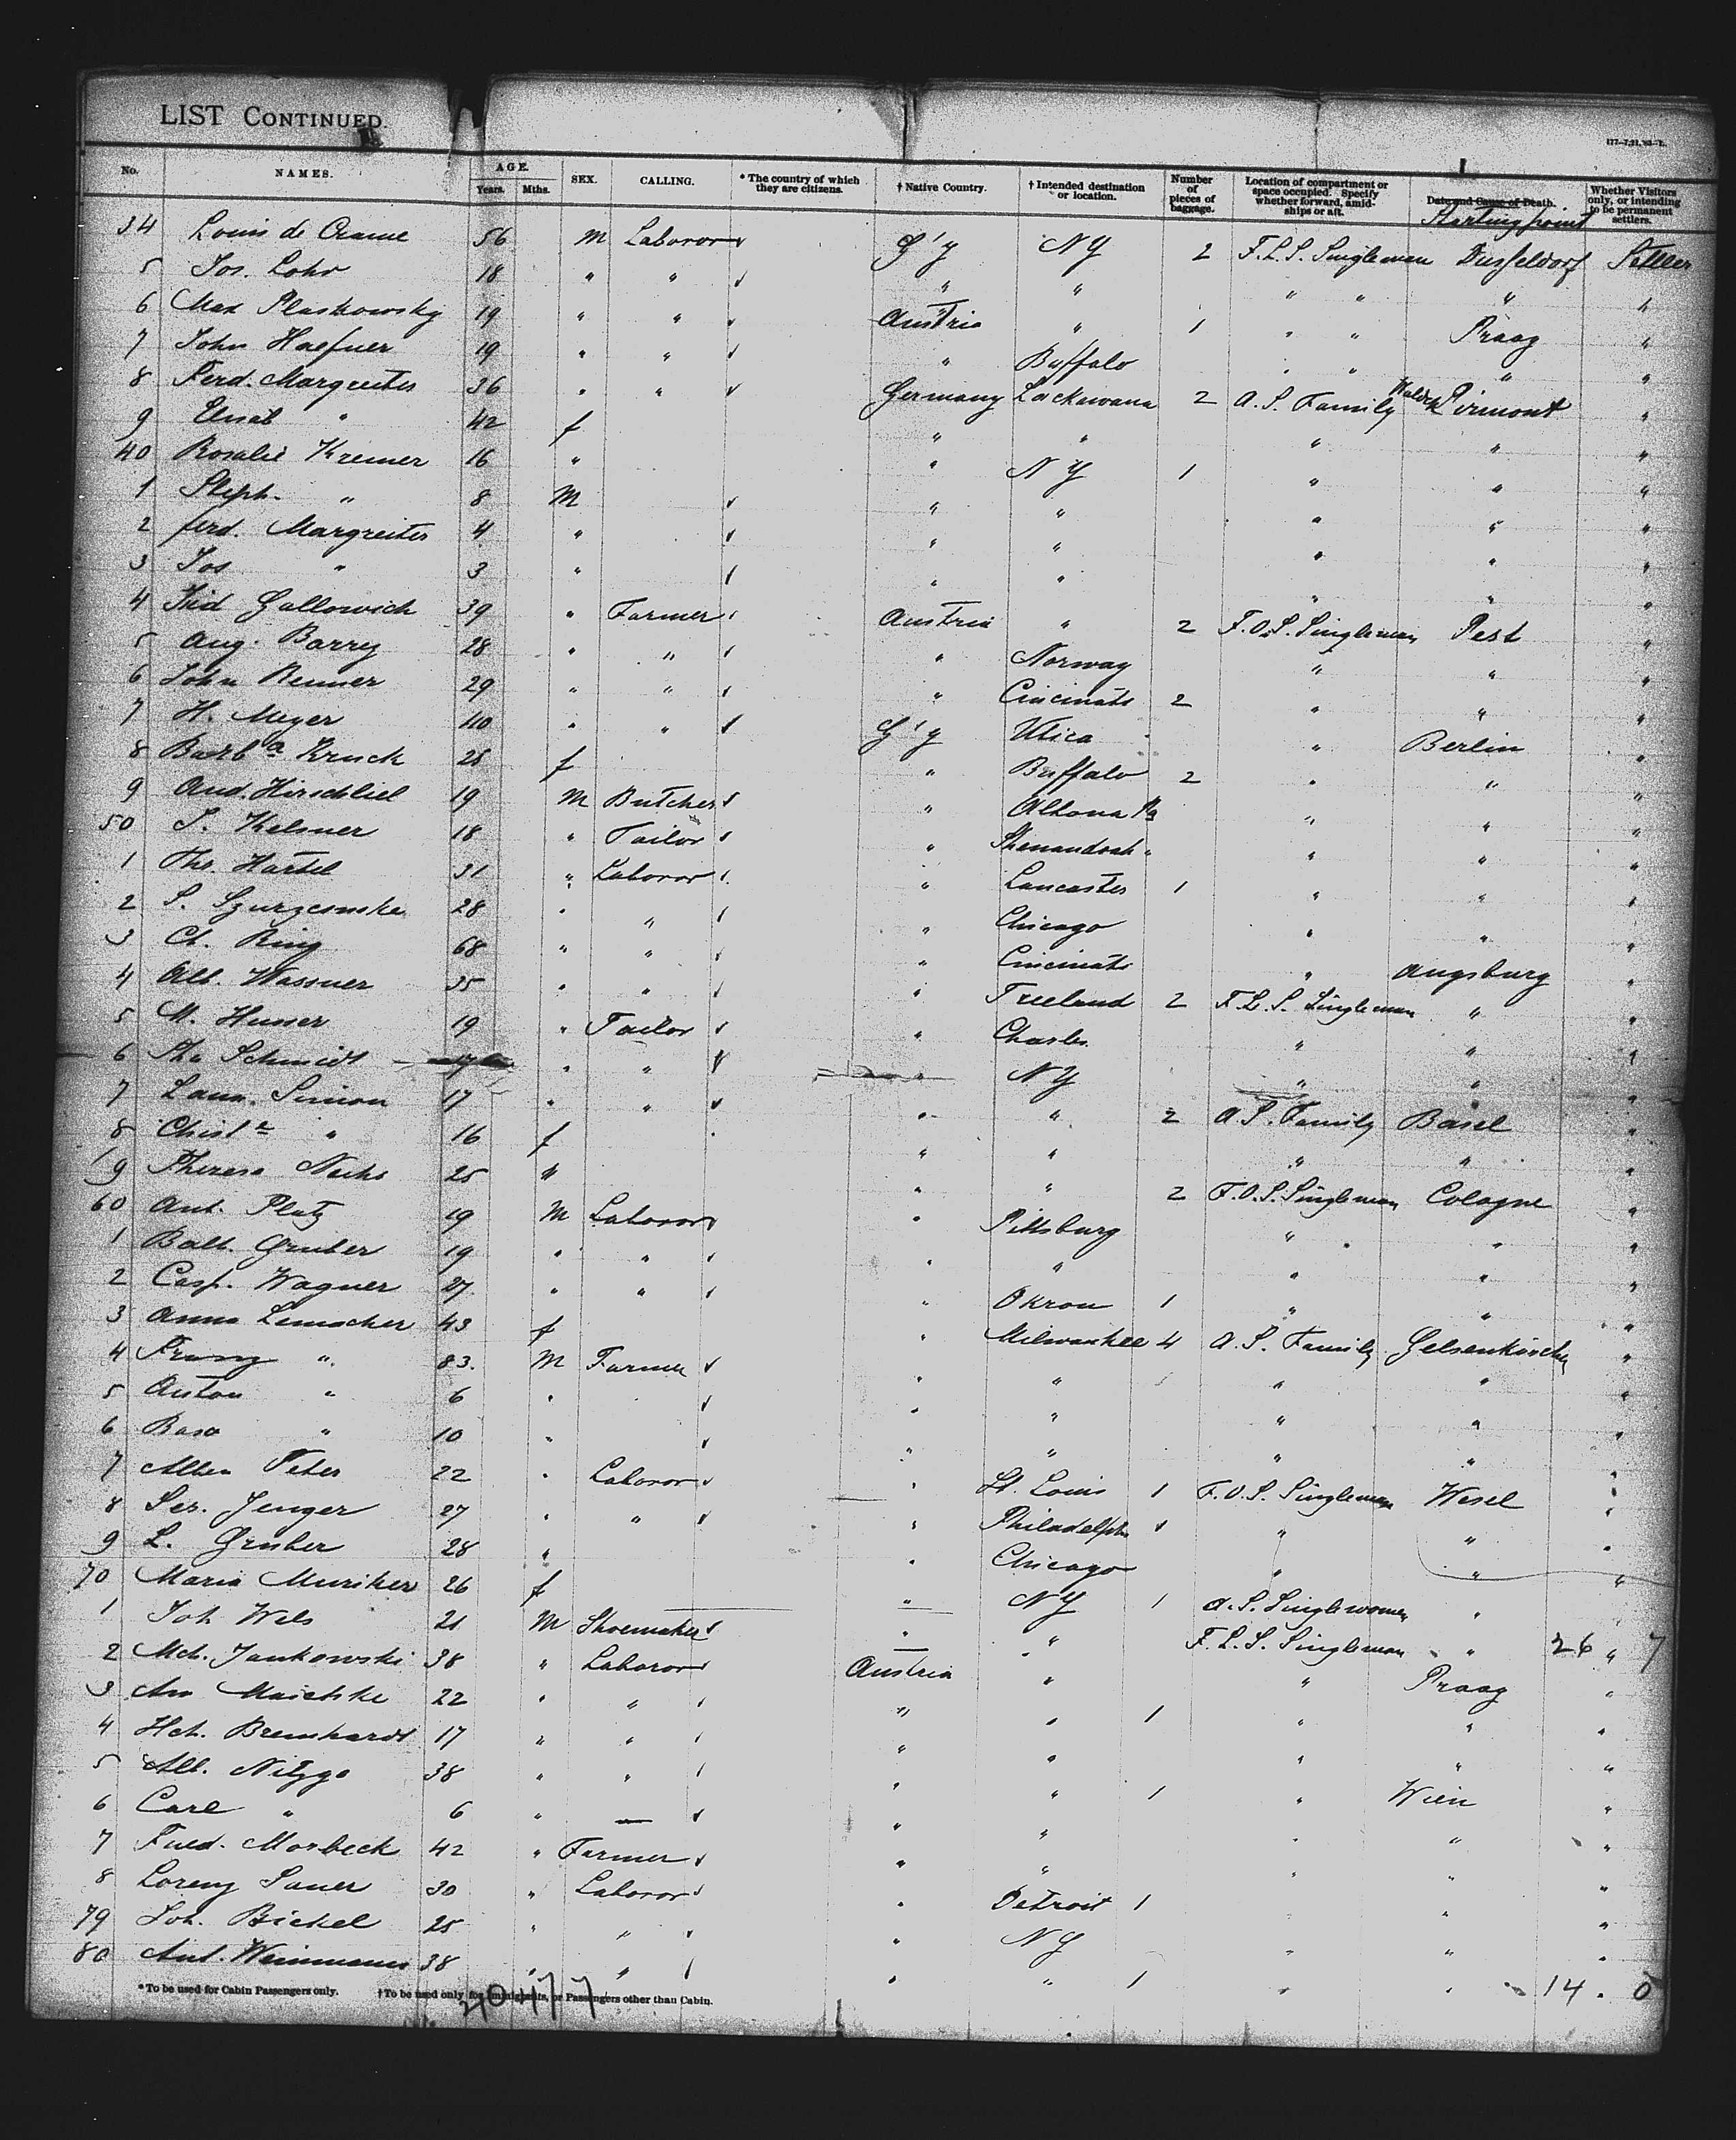 LIST CONTINUED.
177-7,21,'93-L.
No. NAMES. AGE. Years. Mths. SEX. CALLING. * The country of which they are citizens. † Native Country. † Intended destination or location. Number of pieces of baggage. Location of compartment or space occupied. Specify whether forward, amidships or aft. Date and Cause of Death. Starting point Whether Visitors only, or intending to be permanent settlers.
34 Louis de Crame 56 M Laboror G'y NY 2 F.L.S. Singleman Dusseldorf Settler
5 Jos. Lohr 18 " " " " " " " "
6 Max Plaskowsky 19 " " Austria " 1 " " Praag "
7 John Haefner 19 " " " Buffalo " " " "
8 Ferd. Margreiter 36 " " Germany Lackawana 2 A.S. Family Waldek Pirmont "
9 Elisab " 42 f " " " " "
40 Rosalie Kremer 16 " " NY 1 " " "
1 Steph. " 8 M " " " " "
2 ferd. Margreiter 4 " " " " " "
3 Jos " 3 " " " " " "
4 Gallowich 39 " Farmer Austria " 2 F.O.S. Singleman Pest "
5 Aug. Barry 28 " " " Norway " " "
6 John Renner 29 " " " Cincinati 2 " " "
7 H. Meyer 40 " " G'y Utica " Berlin "
8 Barbª Kruck 28 f " Buffalo 2 " " "
9 And. Hirschliel 19 M Butcher " Altoona Pa " " "
50 S. Kelsner 18 " Tailor " Shenandoah " " " "
1 Ths. Hartel 31 " Laboror " Lancaster 1 " " "
2 S. Szurzesnske 28 " " " Chicago " " "
3 Ch. Ring 68 " " " Cincinati " Augsburg "
4 Alb. Wassner 35 " " " Freeland 2 F.L.S. Singleman " "
5 M. Huner 19 " Tailor " Charles. " " "
6 Schmidt " " " NY " " "
7 Simon 17 " " " " 2 A.S. Family Basel "
8 Christe " 16 f " " " " "
9 Theresa Nechs 25 " " " 2 F.O.S. Singleman Cologne "
60 Ant. Platz 19 M Laboror " Pittsburg " " "
1 Balt. Gruber 19 " " " " " " "
2 Casp. Wagner 27 " " " Okron 1 " " "
3 Anna Lemacher 43 f " Milwaukee 4 A.S. Family Gelsenkirchen "
4 Franz " 83. M Farmer " " " " "
5 Anton " 6 " " " " " "
6 Basa " 10 " " " " " "
7 Peter 22 " Laboror " St. Louis 1 F.O.S. Singleman Wesel "
8 Ser. Jenger 27 " " " Philadelph " " "
9 L. Gruber 28 " " Chicago " " "
70 Maria Muriker 26 f " NY 1 A.S. Singlewomen " "
1 Joh Wels 21 M Shoemaker " " F.L.S. Singleman " 26 " 7
2 Mch. Jankowski 38 " Laboror Austria " " Praag "
3 Maichske 22 " " " " 1 " " "
4 Hch. Bernhardt 17 " " " " " " "
5 Alb. Nitzge 38 " " " " 1 " Wien "
6 Carl " 6 " — " " " " "
7 Fried. Morbeck 42 " Farmer " " " " "
8 Lorenz Sauer 30 " Laboror " Detroit 1 " " "
79 Joh. Bickel 25 " " " NY " " "
80 Ant. Weinmann 38 " " " " 1 " " 14 . 0
* To be used for Cabin Passengers only. † To be used only for Immigrants, or Passengers other than Cabin.